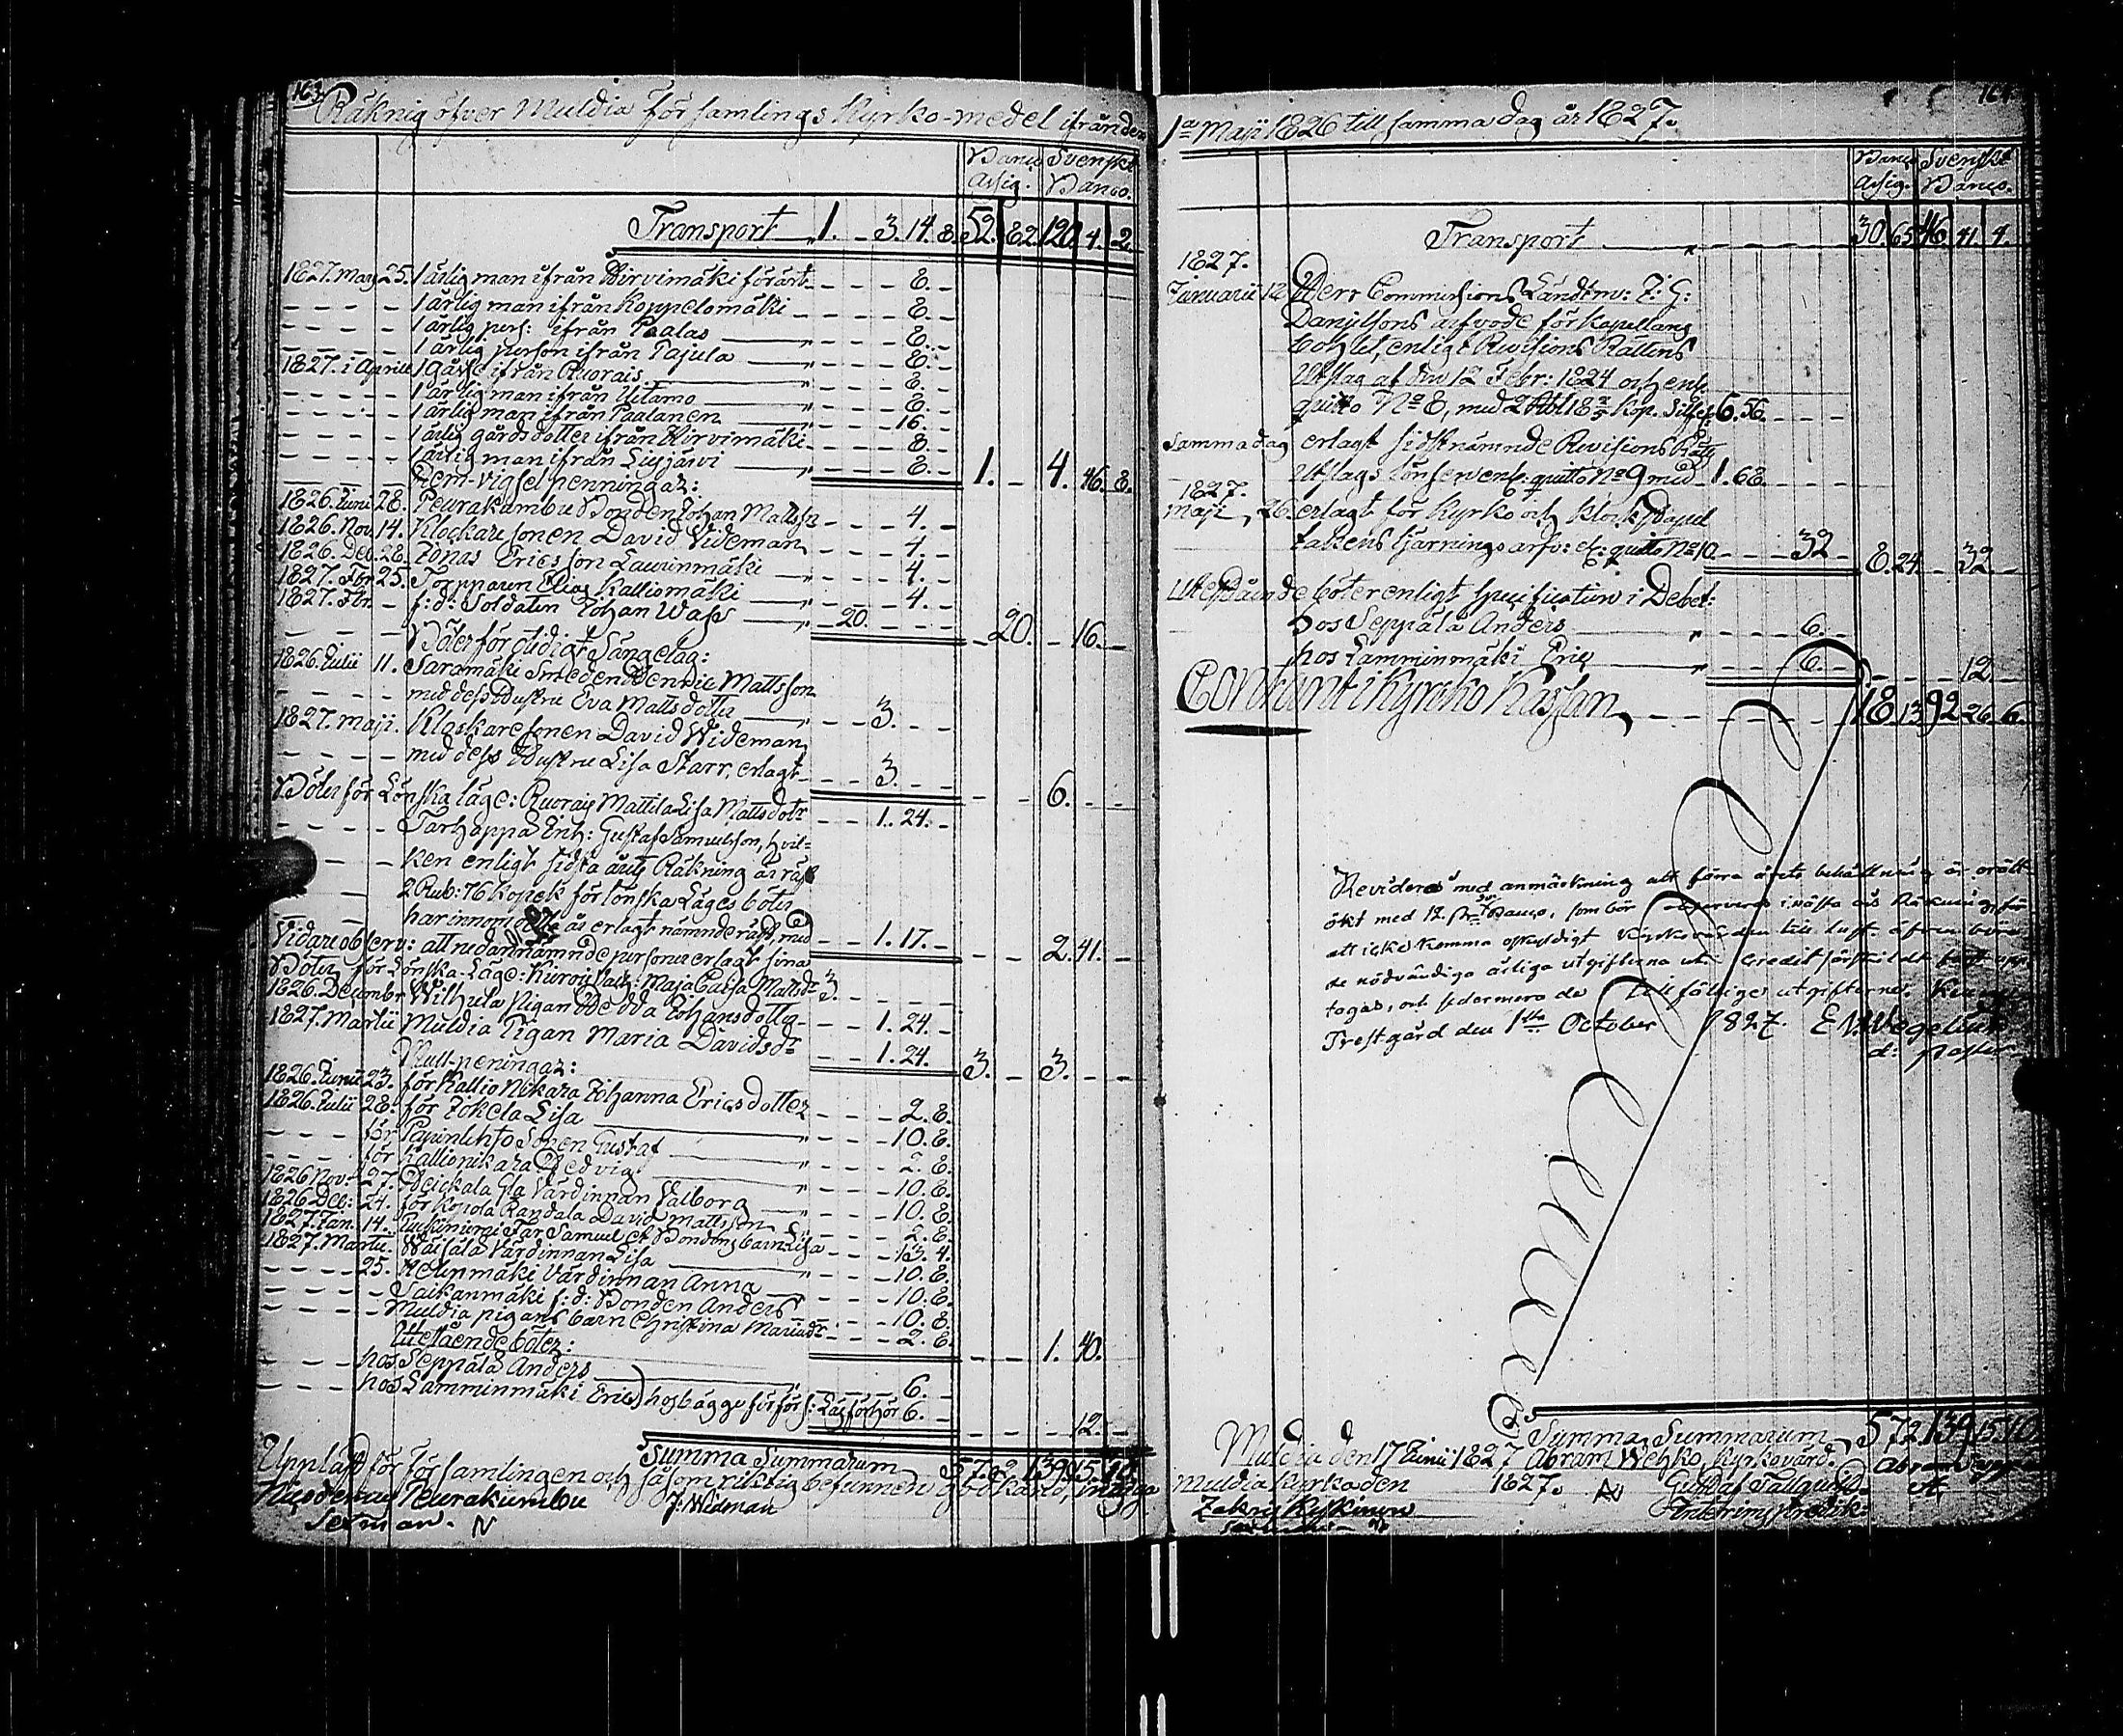 163.
Räknig öfver Muldia församlings Kyrko-medel ifrån den
Banco Svenskt
Assig. Banco.
Transport 1. - 3. 14. 8. 52. 82. 120. 4. 2.
1827. May 25. 1 ärlig man ifrån Hirvimäki förärt - - - - 8. -
- - - - 1 ärlig man ifrån Koppelomäki - - - - 8. -
- - - - 1 ärlig pers: ifrån Paalas - - - - 8. -
- - - - 1 ärlig person ifrån Pajula - - - - 8. -
1827. i Aprill 1 ifrån Ruorais - - - - 8. -
- - - - 1 ärlig man ifrån Uitamo - - - - 8. -
- - - - 1 ärlig man ifrån Paalanen - - - - 16. -
- - - - 1 ärlig gårds dotter ifrån Hirvimäki - - - - 8. -
- - - - 1 ärlig man ifrån - - - - 8. - 1. - 4. 46. 8.
vigsel penningar:
1826. Junii 28. Peurakumbu Bonden Johan Mattsson - - - 4. -
1826. Nov. 14. Klockare sonen David Videman - - - 4. -
1826. Dec. 28. Jonas Ericsson Laurinmäki - - - 4. -
1827. Fbr. 25. Torpparen Elias Kalliomäki - - - 4. -
1827. Fbr. - f: d: Soldaten Johan Wass - 20. - - - - 20. - 16. -
- - - Böter för otidigt Sängelag:
1826. Julii 11. Saramäki Smeden Mattsson
- - - - med dess Hustru Eva Matts dotter - - 3. - -
1827. maji. Klockaresonen David Wideman
- - - - med dess Hustru Lisa Starr, erlagt - - 3. - - - - 6. - -
Böter för Lönskaläge: Ruorais Mattila Lisa Matts dotr - - 1. 24. -
- - - - Tarhappä Inh: Gustaf Samuelsson, hvil-
- - ken enligt sidsta års Räkning är
2 Rub: 76 Kopek för lönska Läges böter
har innom år erlagt nämnde räst, med - - 1. 17. - - 2. 41. -
Vidare observ: att nedannämnde personer erlagt sina
Böter för Lönska-Läge: Maja Caisa Mattsdr 3. - - - -
1826. Decembr Wilhula Pigan Hedda Johansdotter - - 1. 24. -
1827. Martii Muldia Pigan Maria Davidsdr - - 1. 24. - 3. - 3. - -
Mull-peningar:
1826. Junii 23. för Kallio Nikara Johanna Ericsdotter - - - 2. 8.
1826. Julii 28. för Jokela Lisa - - - 10. 8.
- - - för Papinlehto Sonen Gustaf - - - 2. 8.
- - - för Kallionikara Hedvig - - - 10. 8.
1826 Nov: 27. Värdinnan Valborg - - - 10. 8.
1826 Dec: 24. för Kojola Randala David mattsson - - - 2. 8.
1827. Jan. 14. Samuel Bondens barn Lisa - - - 13. 4.
1827. Martii. Värdinnan Lisa - - - 10. 8.
- - - - 25. Värdinnan Anna - - - 10. 8.
- - - - Saikanmäki f: d: Bonden Anders - - - 10. 8.
- - - - Muldia pigans barn Christina Mariadr - - - 2. 8. - - 1. 40.
Utestående böter:
- - - hos Seppälä Anders - - - 6. -
- - - hos Lamminmäki Eric) hos bägge för förs: Läsförhör 6. - - - - 12. -
Summa Summarum 57. 2 139. 15. 10.
Uppläst för församlingen och såsom riktig befunnen
Peurakumbu J: Widman
Sexman. N

164
1a Maji 1826 till samma dag år 1827.
Banco Svenskt
Assig. Banco.
Transport - - - - - 30 65 46 41. 4.
1827.
Januarii 12. Herr Commissions Landtm: J: G:
Danielsons arfvode för Kapellans
Bohlet, enligt Revisions Rättens
Utslag af den 12 Febr: 1824 och enl:
quitto No 8, med 2 Rbl 18 Kop. Silfver 6. 56. - - -
Samma dag erlagt sidstnämnde Revisions Rätts
Utslags lösen enl: quitto No 9 med 1. 68. - - -
1827.
Maji 26. erlagt för Kyrko och
takens tjärnings arfv: ef: quitto No 10 - - - 32 - 8. 24. - 32. -
Utestående böter enligt specification i Debet:
hos Seppälä Anders - - - 6. -
hos Lamminmäki Eric - - - 6. - - - - 12. -
Contant i Kyrcko Kassan, - - - - - - 18. 13 92 26 6.
Revideras med anmärkning att förra årets behållning är orätt
ökt med 12. Banco, som bör observeras i nästa års Räkning för
att icke komma oskyldigt Kyrkovärden till last. äfven böra
de nödvändiga årliga utgifterna uti Credit särskildt upp-
tagas, och sedermera de tillfällige utgifterne.
Prestgård den 1sta October 1827. E W Wegelius
d: pastor.
Summa Summarum 57 2 139 15 10
Muldia den 17 Junii 1827 Abram Wehko, Kyrkovärd.
Muldia Kyrka den 1827. Gustaf Tallqvist.
Zakris Kyckinen